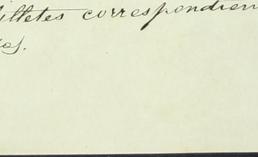 illetes correspondien
os.